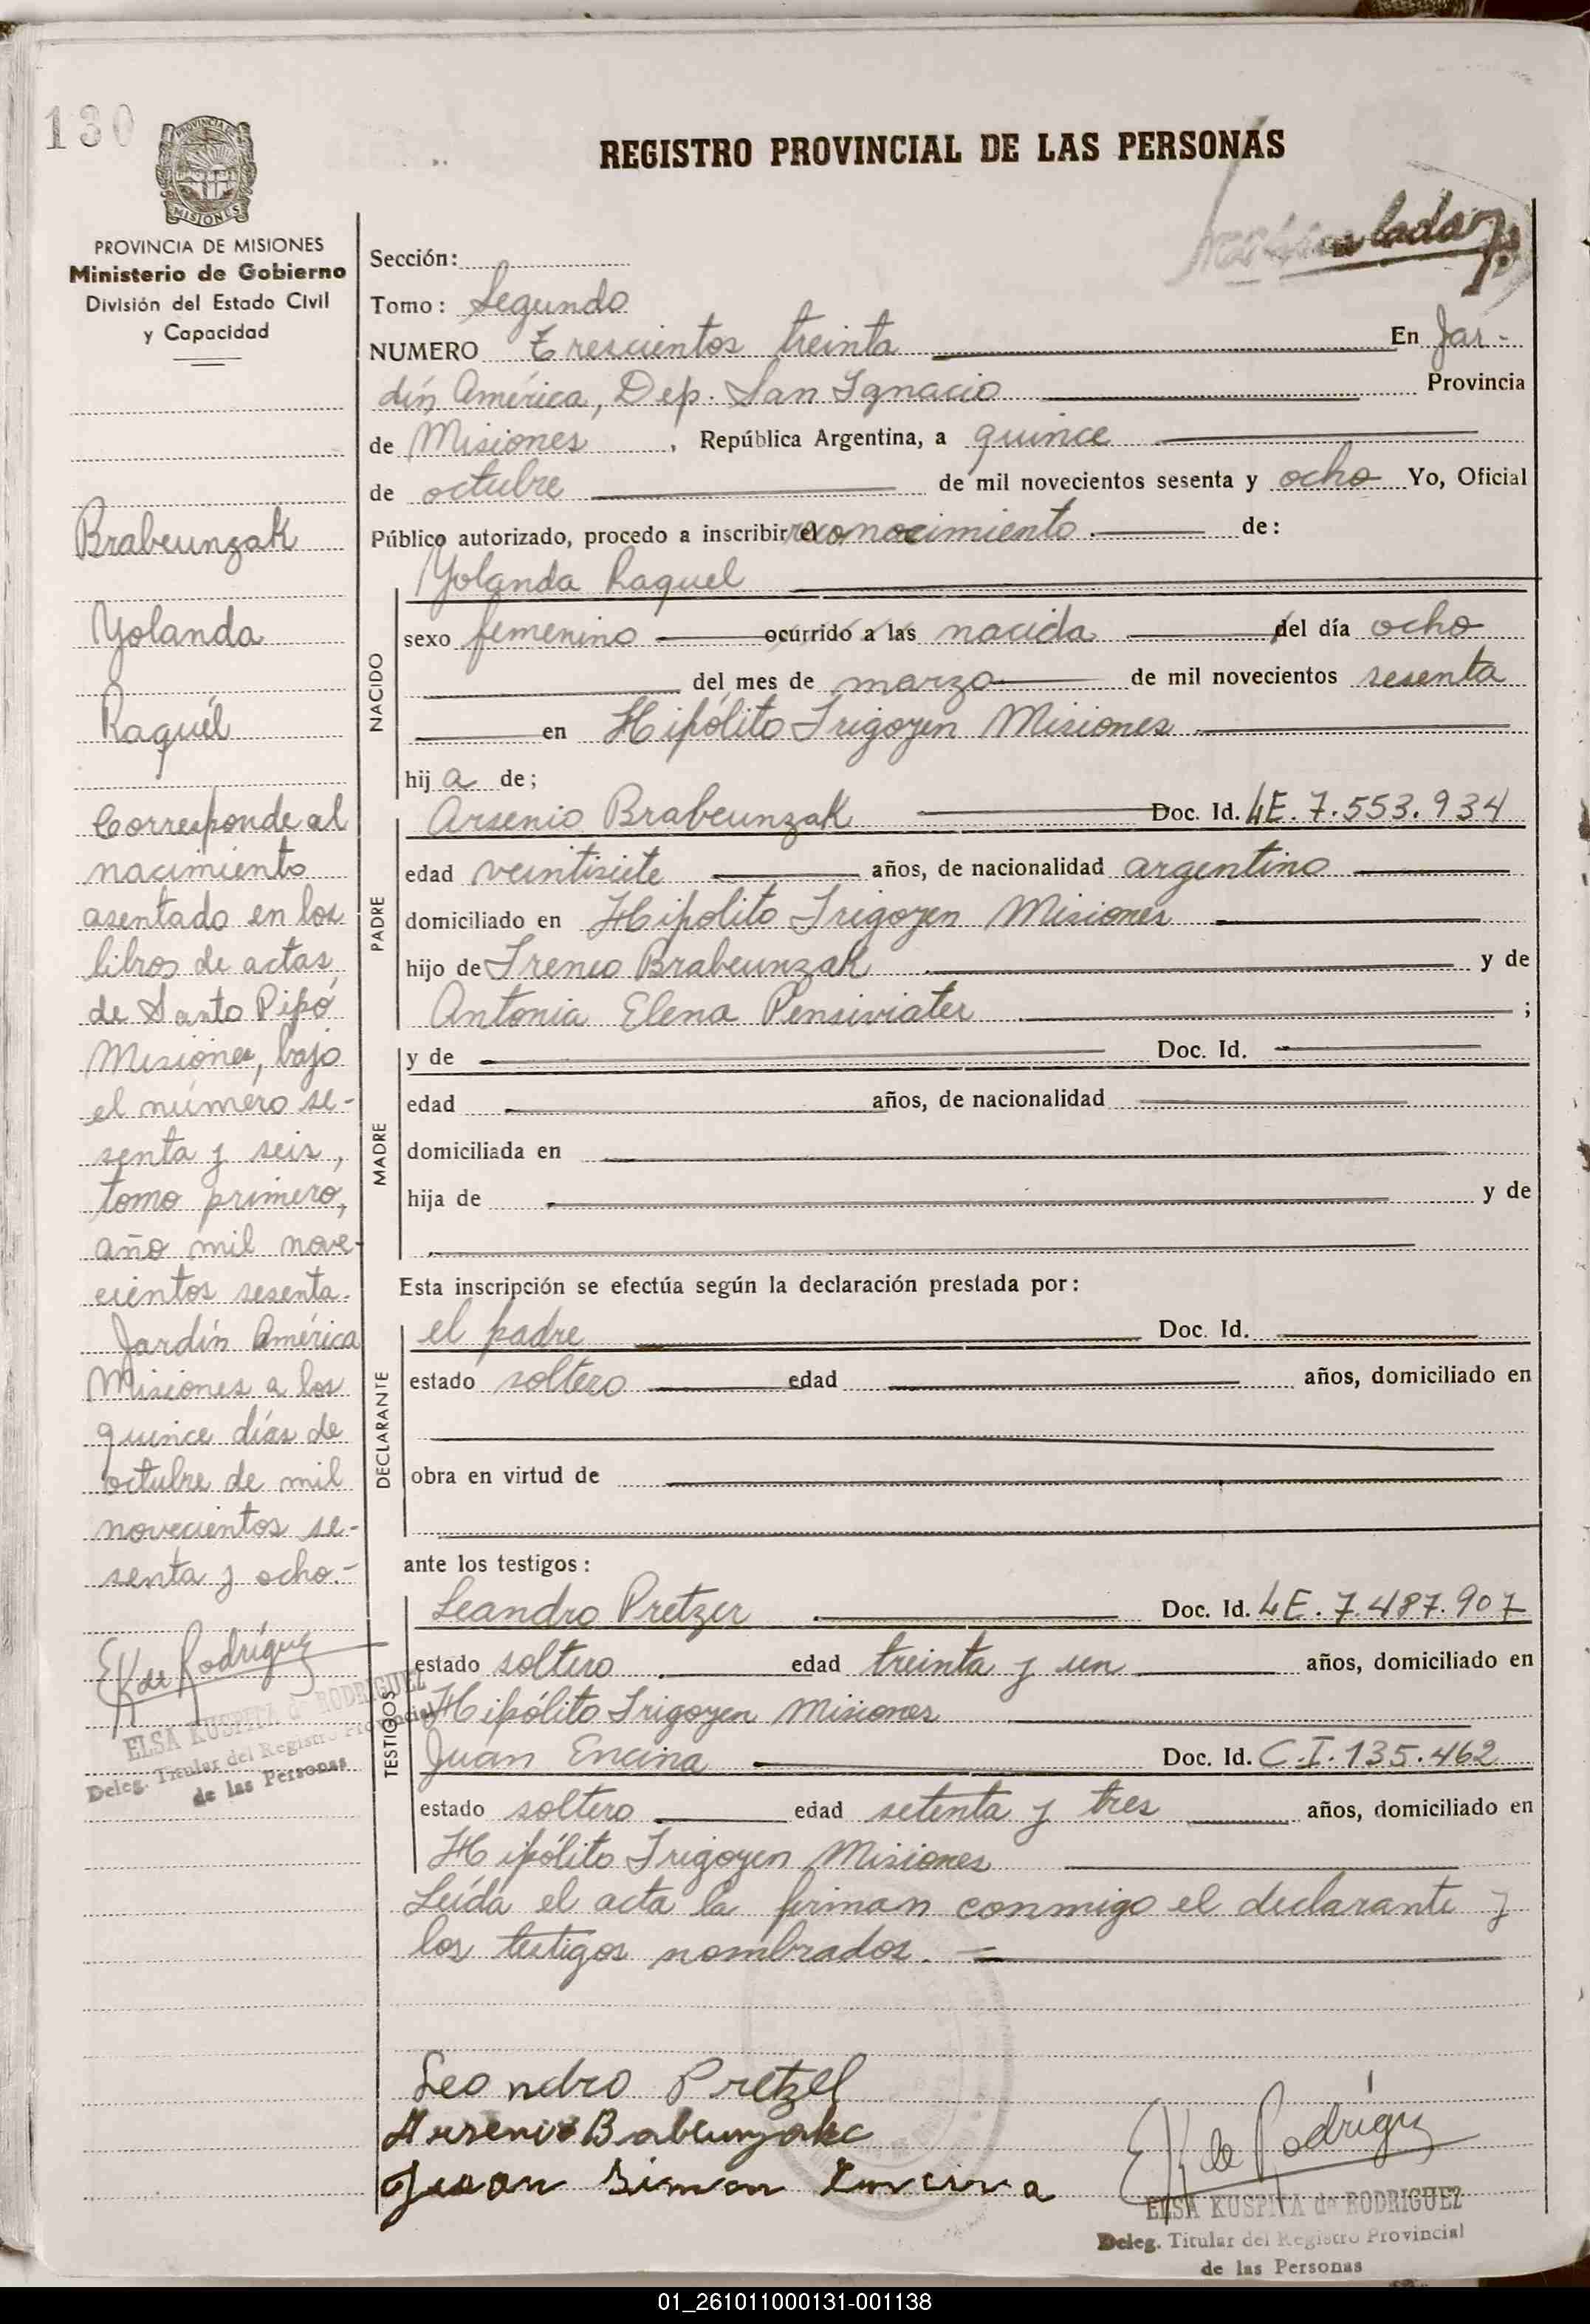 130
PROVINCIA DE MISIONES
Ministerio de Gobierno
División del Estado Civil
y Capacidad
Brabeunzak
Yolanda
Raquél
Corresponde al
nacimiento
asentado en los
libros de actas
de Santo Pipó
Misiones, bajo
el número se-
senta y seis,
tomo primero,
año mil nove-
cientos sesenta.
Jardín América
Misiones a los
quince días de
octubre de mil
novecientos se-
senta y ocho.-
EK de Rodríguez
ELSA KUSPITA de RODRIGUEZ
Deleg. Titular del Registro Provincial
de las Personas
REGISTRO PROVINCIAL DE LAS PERSONAS
Sección:
Tomo: Segundo
NUMERO Trescientos treinta En Jar-
dín América, Dep. San Ignacio Provincia
de Misiones, República Argentina, a quince
de octubre de mil novecientos sesenta y ocho Yo, Oficial
Público autorizado, procedo a inscribir el reconocimiento de:
Yolanda Raquel
NACIDO
sexo femenino ocurrido a las nacida del día ocho
del mes de marzo de mil novecientos sesenta
en Hipólito Irigoyen Misiones
hij a de;
PADRE
Arsenio Brabeunzak Doc. Id. LE. 7.553.934
edad veintisiete años, de nacionalidad argentino
domiciliado en Hipolito Irigoyen Misiones
hijo de Ireneo Brabeunzak y de
Antonia Elena Pensiviater ;
MADRE
y de Doc. Id.
edad años, de nacionalidad
domiciliada en
hija de y de
Esta inscripción se efectúa según la declaración prestada por:
DECLARANTE
el padre Doc. Id.
estado soltero edad años, domiciliado en
obra en virtud de
ante los testigos:
TESTIGOS
Leandro Pretzer Doc. Id. LE. 7.487.907
estado soltero edad treinta y un años, domiciliado en
Hipólito Irigoyen Misiones
Juan Encina Doc. Id. C.I. 135.462
estado soltero edad setenta y tres años, domiciliado en
Hipólito Irigoyen Misiones
Leída el acta la firman conmigo el declarante y
los testigos nombrados.
Leondro Pretzel
Arsenio Babeunzakc
Juan Simon Encina
EK de Rodríguez
ELSA KUSPITA de RODRIGUEZ
Deleg. Titular del Registro Provincial
de las Personas
01_261011000131-001138